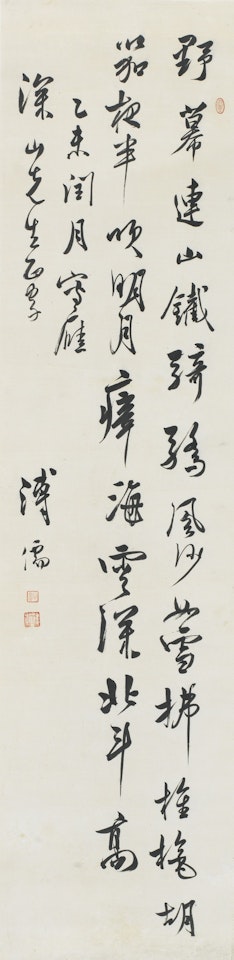 野幕連山鐵騎驕風沙如雪拂旌旄胡
笳夜半吹明月瘴海雲深北斗高
乙未閏月寫應
深山先生正
溥儒